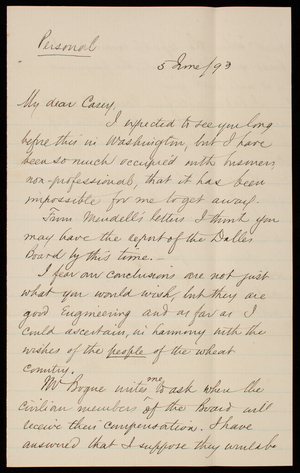 Personal
5 June/93
My dear Casey,
I expected to see you long
before this in Washington, but I have
been so much occupied with business
non-professional, that it has been
impossible for me to get away.
From Mendell's letters I think you
may have the report of the Dalles
Board by this time.—
I fear our conclusions are not just
what you would wish, but they are
good Engineering and as far as I
could ascertain, in harmony with the
wishes of the people of the wheat
country.
Mr Bogue writes me to ask when the
civilian members of the Board will
receive their compensation. I have
answered that I suppose they will be